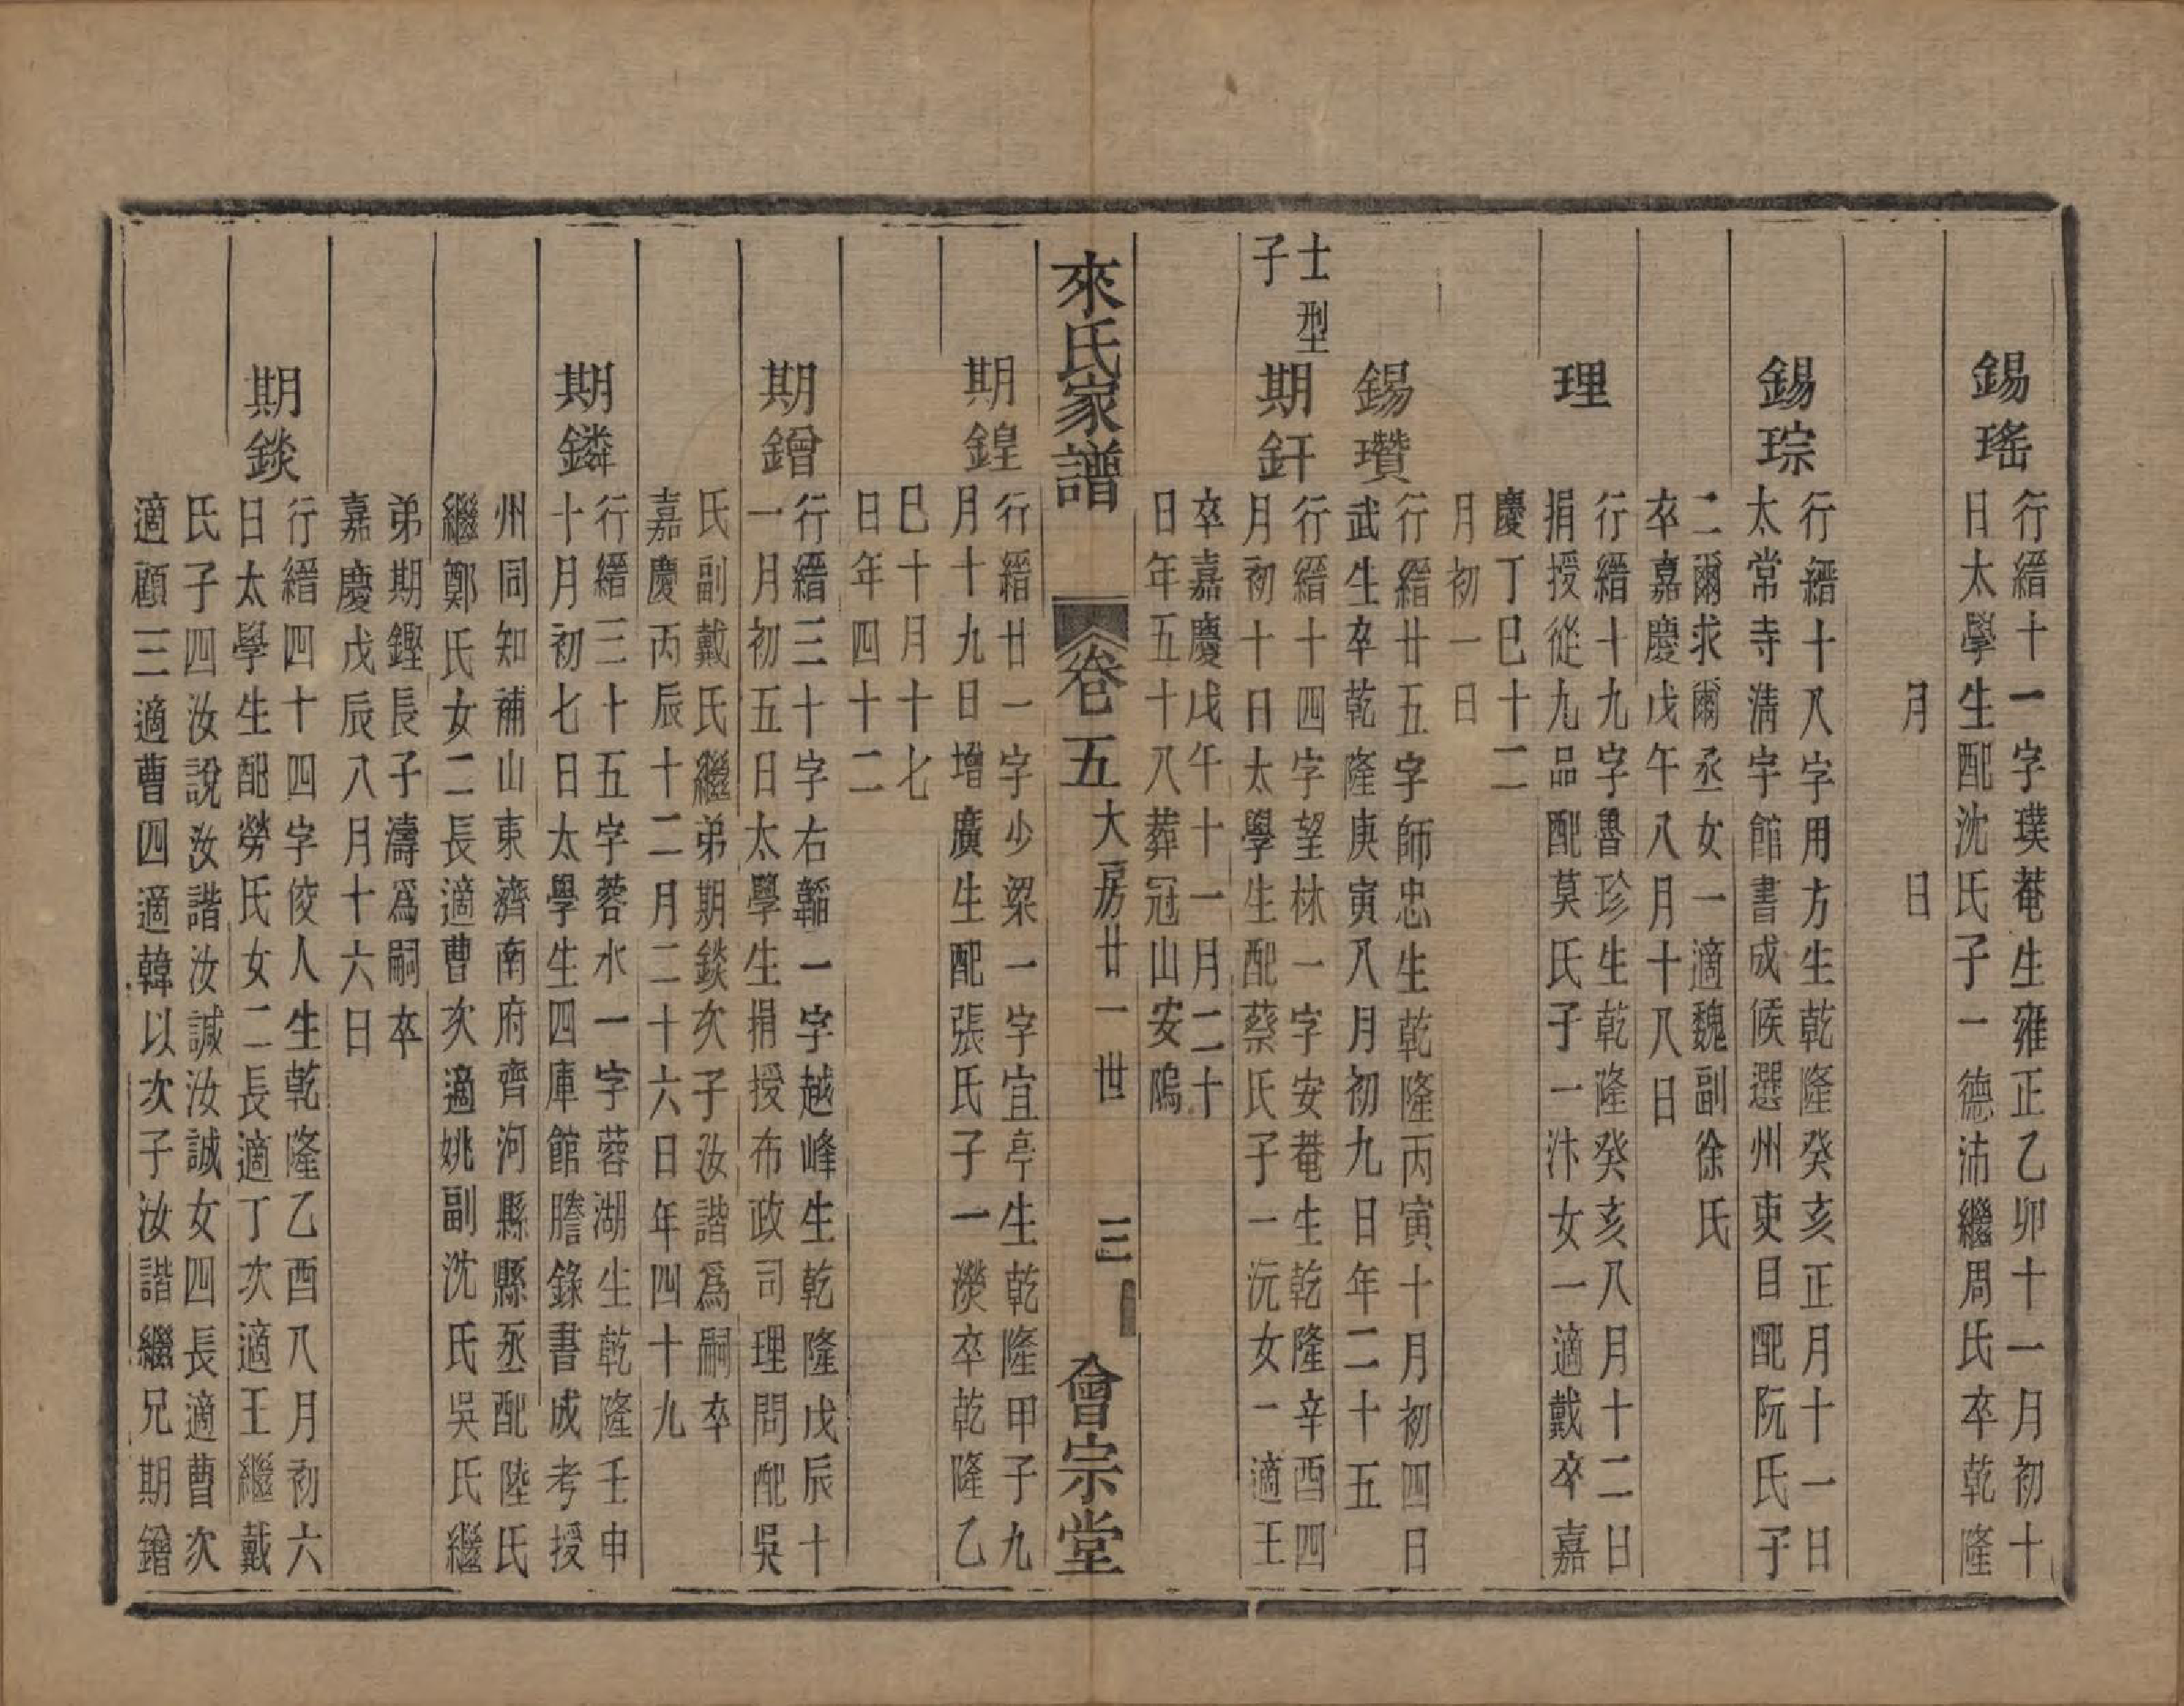 錫瑤
行縉十一字璞菴生雍正乙卯十一月初十
日太學生配沈氏子一德沛繼周氏卒乾隆
月　日
錫琮
行縉十八字用方生乾隆癸亥正月十一日
太常寺淸宇館書成候選州吏目配阮氏子
二爾求爾丞女一適魏副徐氏
卒嘉慶戊午八月十八日
理
行縉十九字魯珍生乾隆癸亥八月十二日
捐授從九品配莫氏子一汴女一適戴卒嘉
慶丁巳十二
月初一日
錫瓚
行縉廿五字師忠生乾隆丙寅十月初四日
武生卒乾隆庚寅八月初九日年二十五
士型
子
期釬
行縉十四字望林一字安菴生乾隆辛酉四
月初十日太學生配蔡氏子一沅女一適王
卒嘉慶戊午十一月二十
日年五十八葬冠山安隖
來氏家譜
卷五
大房廿一世
三
會宗堂
期鍠
行縉廿一字少梁一字宜亭生乾隆甲子九
月十九日增廣生配張氏子一濙卒乾隆乙
巳十月十七
日年四十二
期鏳
行縉三十字右韜一字越峰生乾隆戊辰十
一月初五日太學生捐授布政司理問配吳
氏副戴氏繼弟期錟次子汝諧爲嗣卒
嘉慶丙辰十二月二十六日年四十九
期鏻
行縉三十五字蓉水一字蓉湖生乾隆壬申
十月初七日太學生四庫館謄錄書成考授
州同知補山東濟南府齊河縣縣丞配陸氏
繼鄭氏女二長適曹次適姚副沈氏吳氏繼
弟期鏗長子濤爲嗣卒
嘉慶戊辰八月十六日
期錟
行縉四十四字俊人生乾隆乙酉八月初六
日太學生配勞氏女二長適丁次適王繼戴
氏子四汝說汝諧汝諴汝誠女四長適曹次
適顧三適曹四適韓以次子汝諧繼兄期鏳